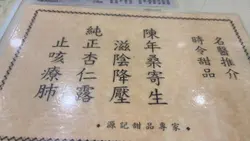 名醫推介
時令甜品
陳年桑寄生
滋陰降壓
純正杏仁露
止咳療肺
·源記甜品專家·